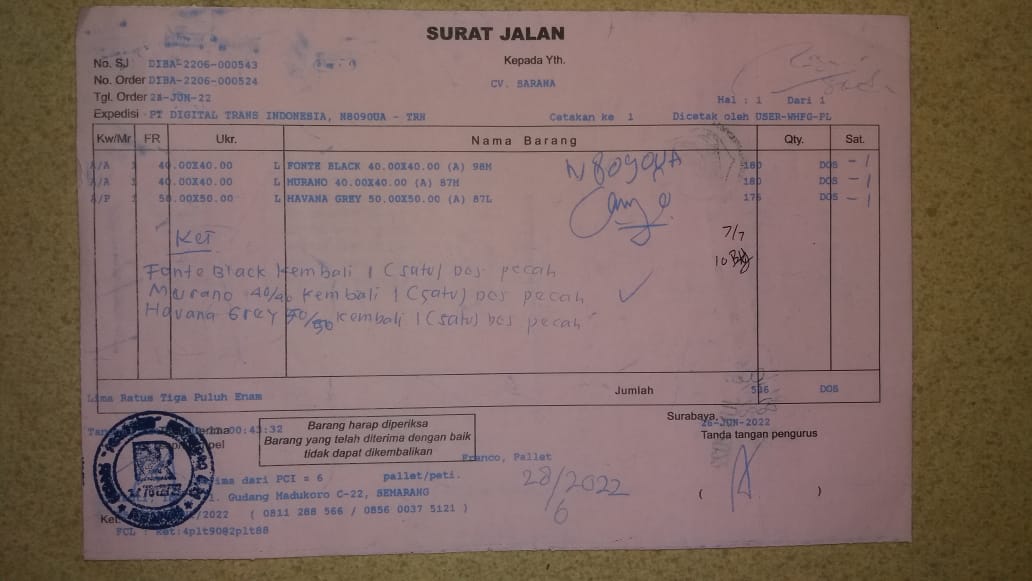 SURAT JALAN
No. SJ DIBA-2206-000543
Kepada Yth.
No. Order DIBA-2206-000524
CV. BARANA
Tgl. Order 28-JUN-22
Hal : 1 Dari 1
Expedisi PT DIGITAL TRANS INDONESIA, N8090UA - TRN Cetakan ke 1 Dicetak oleh USER-WHFG-PL
Kw/Mr FR Ukr. Nama Barang Qty. Sat.
A/A 1 40.00X40.00 L FONTE BLACK 40.00X40.00 (A) 98M 180 DOS - 1
A/A 1 40.00X40.00 L MURANO 40.00X40.00 (A) 87M 180 DOS - 1
A/P 1 50.00X50.00 L HAVANA GREY 50.00X50.00 (A) 87L 176 DOS - 1
N8090UA
Ket
7/7
10
Fonte Black Kembali 1 (satu) Dos pecah
Murano 40/40 Kembali 1 (satu) Dos pecah
Havana Grey 50/50 kembali 1 (satu) Dos pecah
Jumlah 536 DOS
Lima Ratus Tiga Puluh Enam
Barang harap diperiksa
Barang yang telah diterima dengan baik
tidak dapat dikembalikan
Surabaya, 26-JUN-2022
Tanda tangan pengurus
00:43:32
Franco, Pallet
dari PCI = 6 pallet/peti.
Gudang Madukoro C-22, SEMARANG
28/6/2022
( )
Ket /2022 ( 0811 288 566 / 0856 0037 5121 )
FCL : Ket:4plt90@2plt88